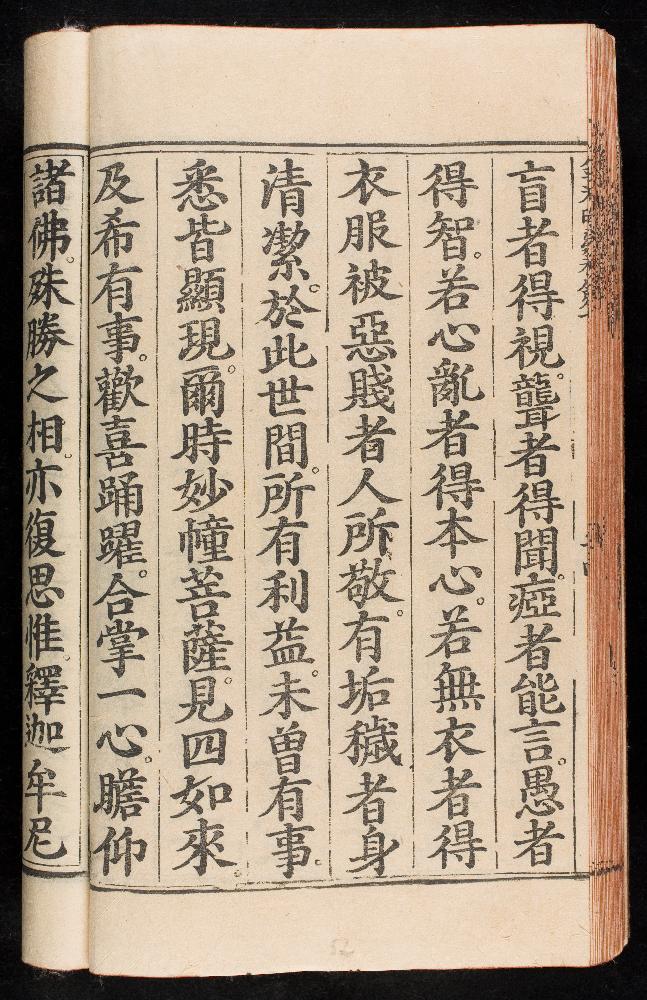 盲者得視。聾者得聞。瘂者能言。愚者
得智。若心亂者得本心。若無衣者得
衣服被惡賤者人所敬。有垢穢者身
清潔。於此世間。所有利益。未曾有事。
悉皆顯現。爾時妙幢菩薩。見四如來。
及希有事。歡喜踊躍。合掌一心。瞻仰
諸佛。殊勝之相。亦復思惟。釋迦牟尼